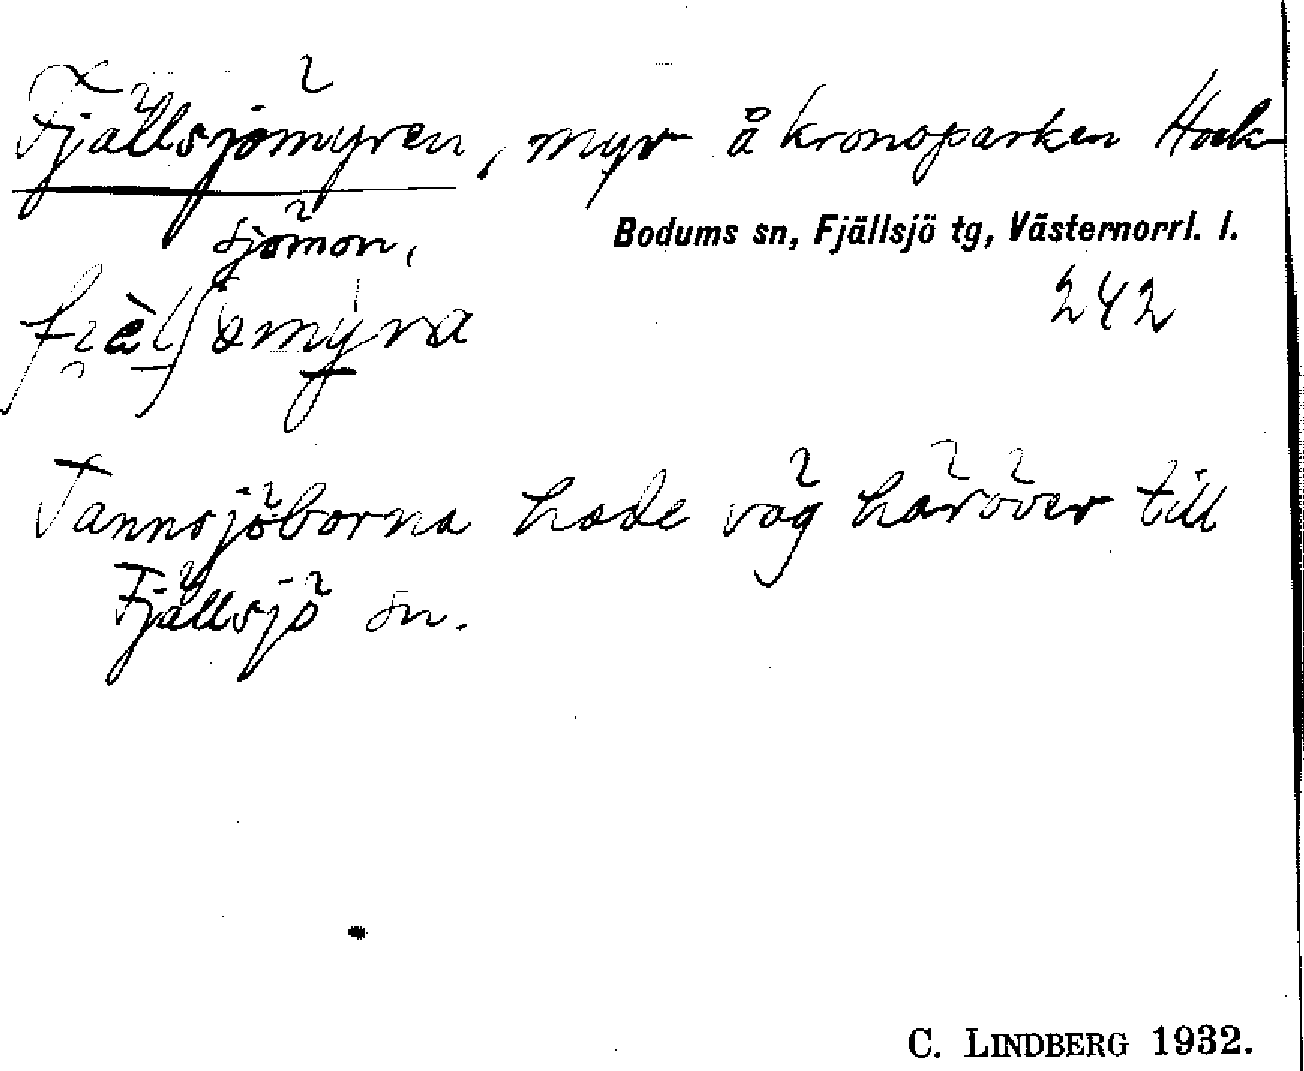 Fjällsjömyren, myr å kronoparken Hock-
sjömon,
Bodums sn, Fjällsjö tg, Västernorrl. l.
242
Tannsjöborna hade väg häröver till
Fjällsjö sn.
C. LINDBERG 1932.